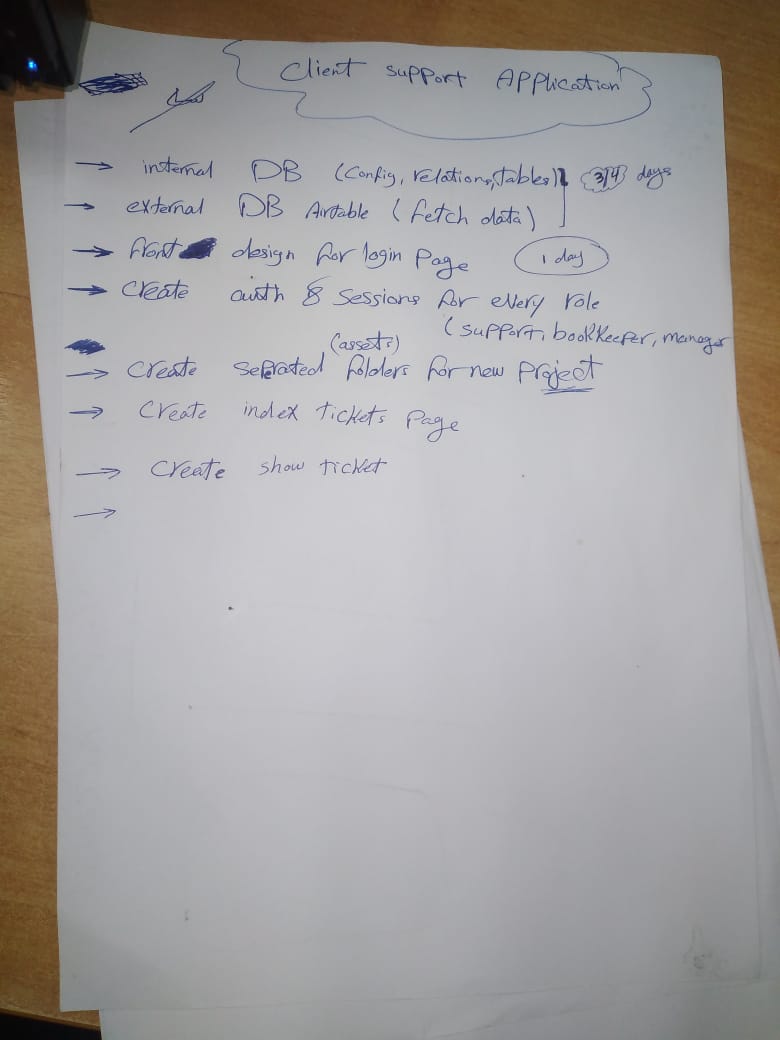 Client support Application
→ internal DB (Config, relations, tables) 3/4 days
→ external DB Airtable (fetch data)
→ front design for login page 1 day
→ Create auth & sessions for every role
(support, bookkeeper, manager
(assets)
→ Create seprated folders for new project
→ Create index tickets page
→ Create show ticket
→